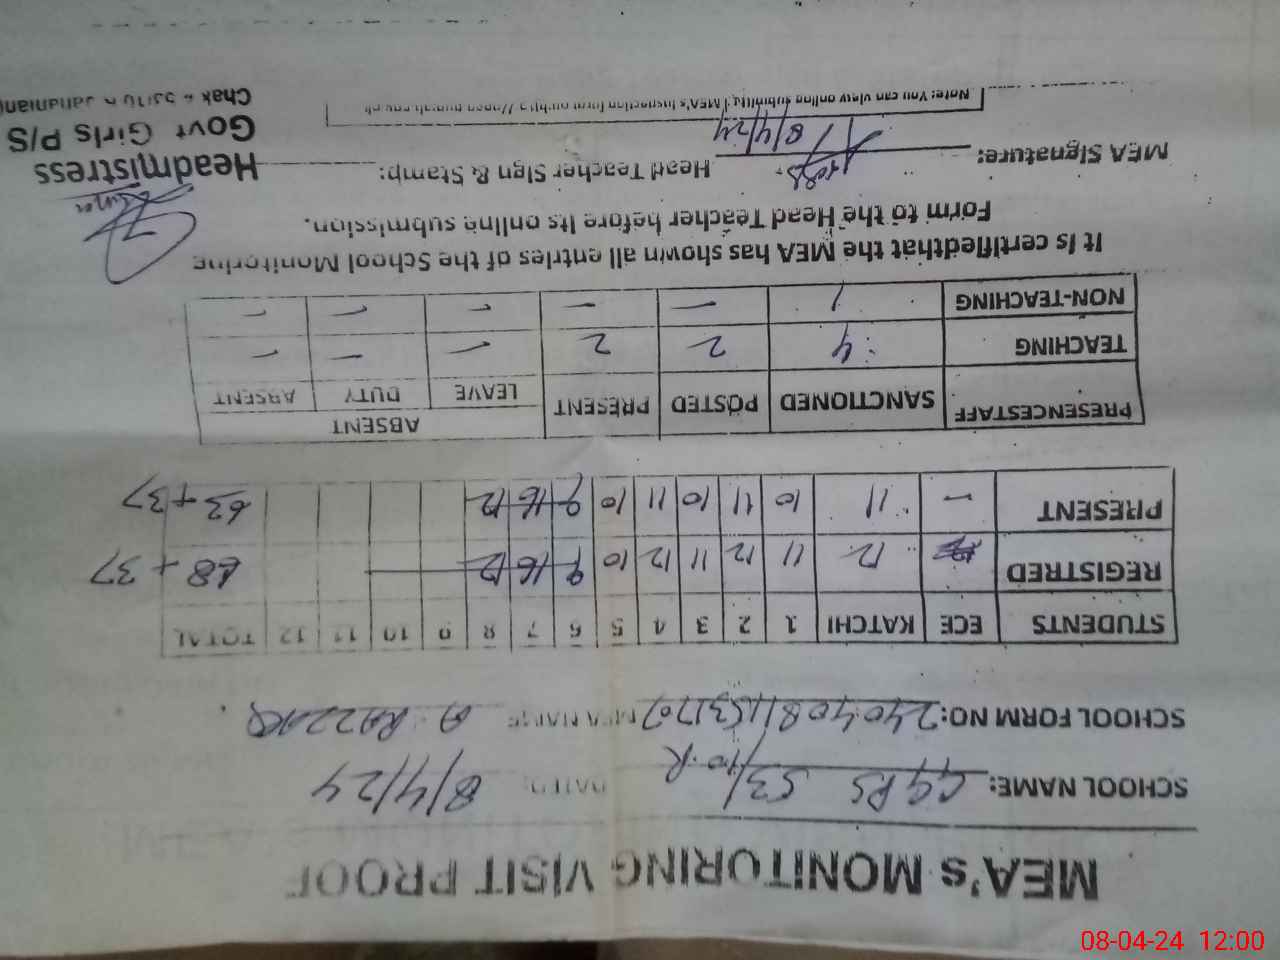 MEA's MONITORING VISIT PROOF
SCHOOL NAME: GGPS 53/10-R DATED: 8/4/24
SCHOOL FORM NO: MEA NAME A RAZZAQ
STUDENTS ECE KATCHI 1 2 3 4 5 6 7 8 9 10 11 12 TOTAL
REGISTRED 12 11 12 11 12 10 9 16 12 68 + 37
PRESENT - 11 10 11 10 11 10 9 16 12 63 + 37
PRESENCESTAFF SANCTIONED POSTED PRESENT ABSENT
LEAVE DUTY ABSENT
TEACHING 4 2 2 - - -
NON-TEACHING 1 - - - - -
It is certifiedthat the MEA has shown all entries of the School Monitoring
Form to the Head Teacher before its online submission.
MEA Signature: 8/4/24 Head Teacher Sign & Stamp:
Headmistress
Govt Girls P/S
Chak # 53/10 R Jahanian
Note: You can view online submitted MEA's inspection form
08-04-24 12:00